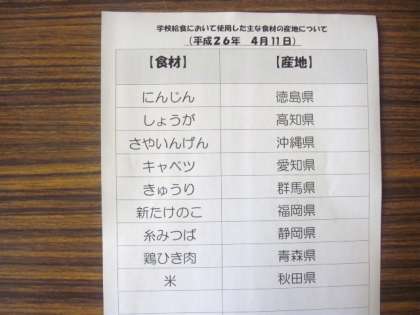 学校給食において使用した主な食材の産地について
（平成２６年　４月１１日）
【食材】　【産地】
にんじん　徳島県
しょうが　高知県
さやいんげん　沖縄県
キャベツ　愛知県
きゅうり　群馬県
新たけのこ　福岡県
糸みつば　静岡県
鶏ひき肉　青森県
米　秋田県